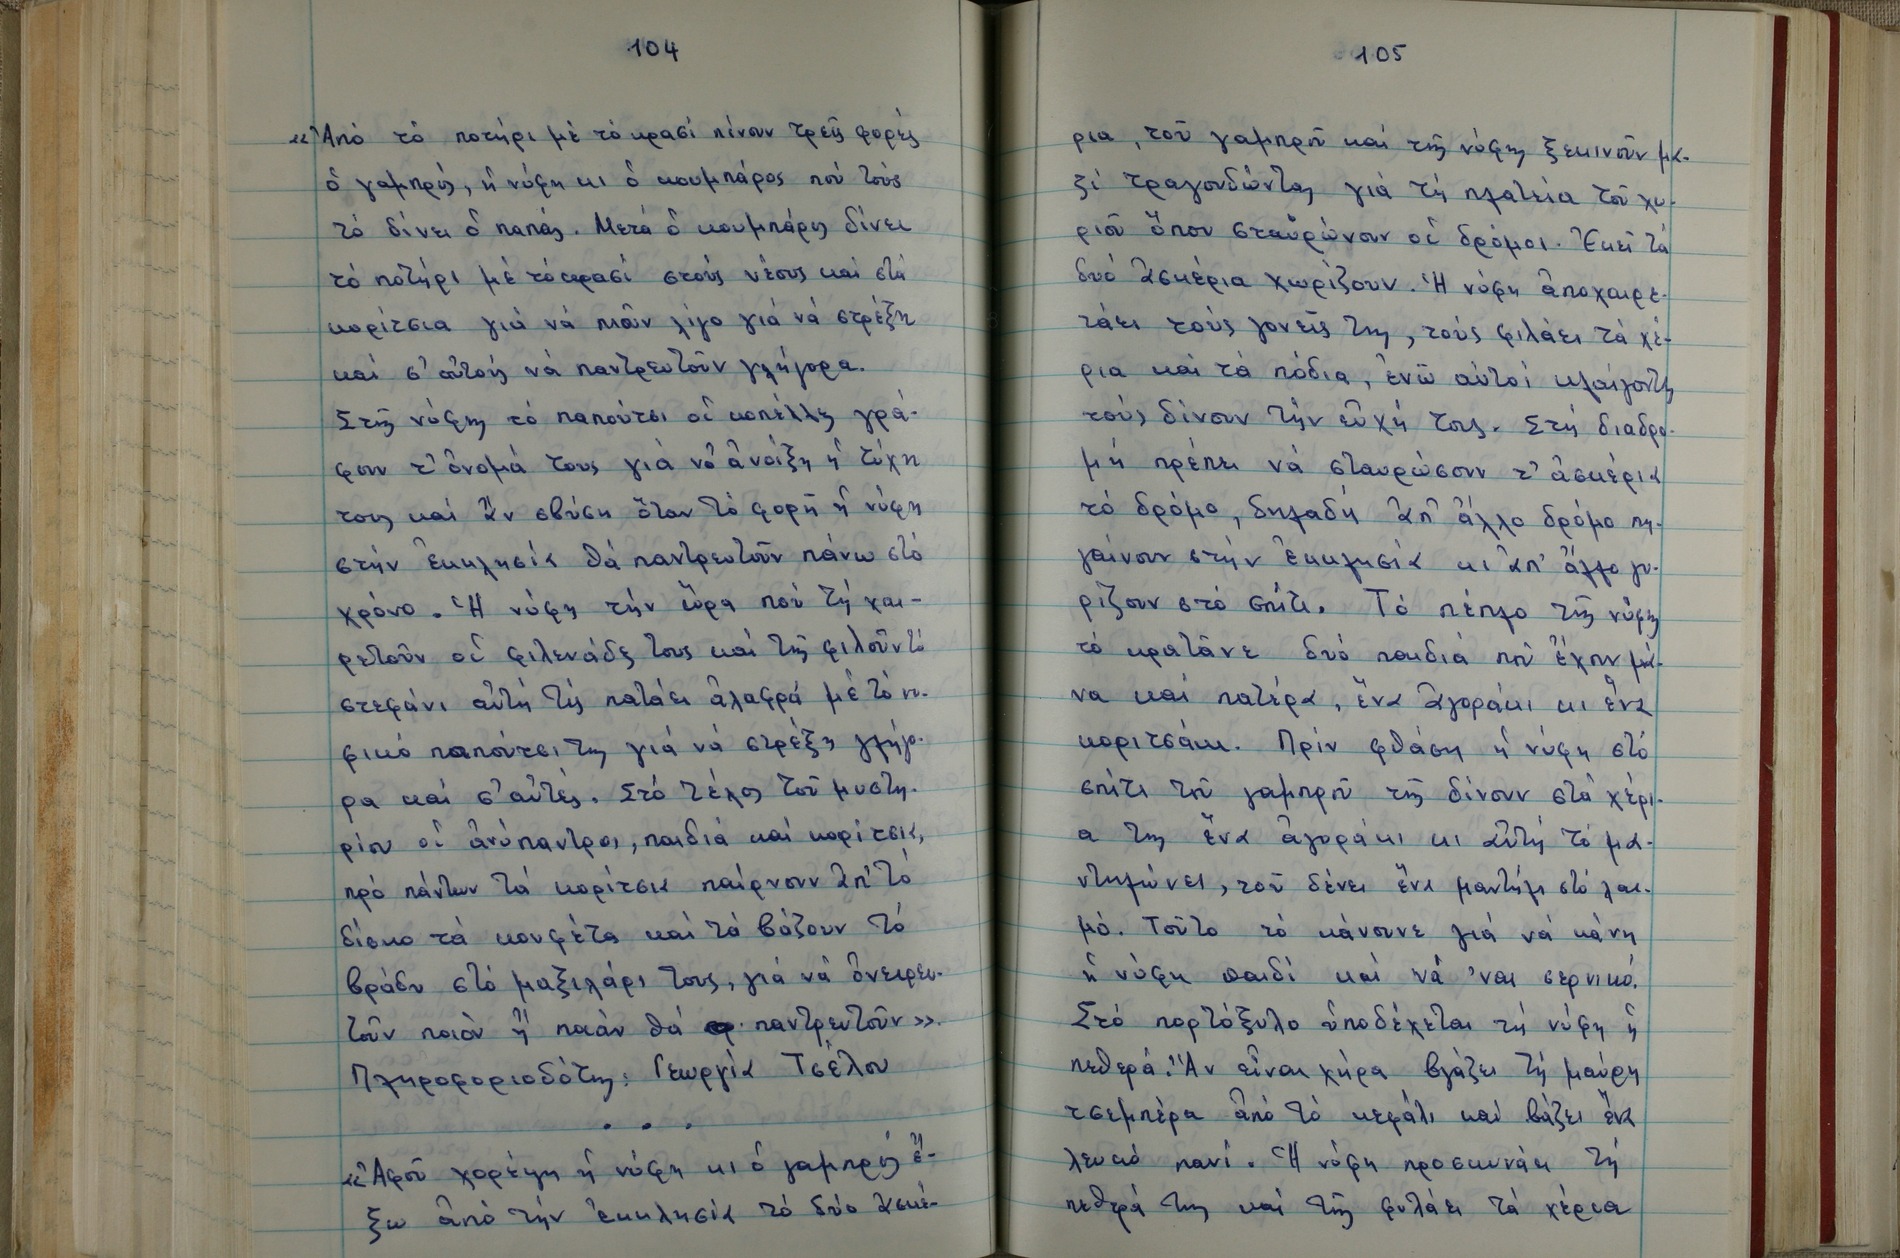 104
«Ἀπό τό ποτήρι μέ τό κρασί πίνουν τρεῖς φορές
ὁ γαμπρός, ἡ νύφη κι ὁ κουμπάρος πού τούς
τό δίνει ὁ παπάς. Μετά ὁ κουμπάρος δίνει
τό ποτήρι μέ τό κρασί στούς νέους καί στά
κορίτσια γιά νά πιοῦν λίγο γιά νά στρέξη
καί σ' αὐτούς νά παντρευτοῦν γλήγορα.
Στῆς νύφης τό παπούτσι οἱ κοπέλλες γρά-
φουν τ' ὄνομά τους γιά ν' ἀνοίξη ἡ τύχη
τους καί ἄν σβύση ὅταν τό φορῆ ἡ νύφη
στήν ἐκκλησία θά παντρευτοῦν πάνω στό
χρόνο. Ἡ νύφη τήν ὥρα πού τή χαι-
ρετοῦν οἱ φιλενάδες τους καί τῆς φιλοῦν τό
στεφάνι αὐτή τίς πατάει ἀλαφρά μέ τό νυ-
φικό παπούτσι της γιά νά στρέξη γλήγο-
ρα καί σ' αὐτές. Στό τέλος τοῦ μυστη-
ρίου οἱ ἀνύπαντροι, παιδιά καί κορίτσια,
πρό πάντων τά κορίτσια παίρνουν ἀπ' τό
δίσκο τά κουφέτα καί τά βάζουν τό
βράδυ στό μαξιλάρι τους, γιά νά ὀνειρευ-
τοῦν ποιόν ἤ ποιάν θά παντρευτοῦν».
Πληροφοριοδότης: Γεωργία Τσέλου
. . .
«Ἀφοῦ χορέψη ἡ νύφη κι ὁ γαμπρός ἔ-
ξω ἀπό τήν ἐκκλησία τά δυό ἀσκέ-
105
ρια, τοῦ γαμπροῦ καί τῆς νύφης ξεκινοῦν μα-
ζί τραγουδώντας γιά τή πλατεία τοῦ χω-
ριοῦ ὅπου σταυρώνουν οἱ δρόμοι. Ἐκεῖ τά
δυό ἀσκέρια χωρίζουν. Ἡ νύφη ἀποχαιρε-
τάει τούς γονεῖς της, τούς φιλάει τά χέ-
ρια καί τά πόδια, ἐνῶ αὐτοί κλαίγοντας
τούς δίνουν τήν εὐχή τους. Στή διαδρο-
μή πρέπει νά σταυρώσουν τ' ἀσκέρια
τό δρόμο, δηλαδή ἀπ' ἄλλο δρόμο πη-
γαίνουν στήν ἐκκλησία κι ἀπ' ἄλλο γυ-
ρίζουν στό σπίτι. Τό πέπλο τῆς νύφης
τό κρατᾶνε δυό παιδιά πού ἔχουν μά-
να καί πατέρα, ἕνα ἀγοράκι κι ἕνα
κοριτσάκι. Πρίν φθάση ἡ νύφη στό
σπίτι τοῦ γαμπροῦ τῆς δίνουν στά χέρι-
α της ἕνα ἀγοράκι κι αὐτή τό μα-
ντηλώνει, τοῦ δένει ἕνα μαντήλι στό λαι-
μό. Τοῦτο τό κάνουνε γιά νά κάνη
ἡ νύφη παιδί καί νά 'ναι σερνικό.
Στό πορτόξυλο ὑποδέχεται τή νύφη ἡ
πεθερά. Ἄν εἶναι χήρα βγάζει τή μαύρη
τσεμπέρα ἀπό τό κεφάλι καί βάζει ἕνα
λευκό πανί. Ἡ νύφη προσκυνάει τή
πεθερά της καί τῆς φιλάει τά χέρια